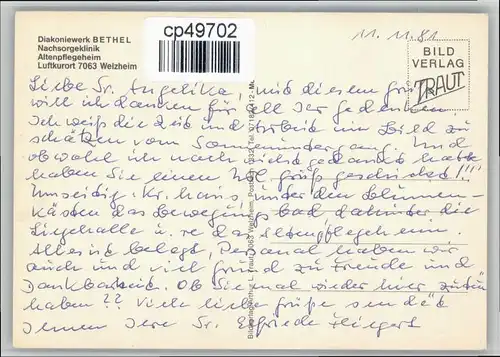 Diakoniewerk BETHEL
Nachsorgeklinik
Altenpflegeheim
Luftkurort 7063 Welzheim
cp49702
11.11.81
BILD
VERLAG
TRAUT
Liebe Sr. Angelika, mit diesem
will ich danken für all Ihr Gedenken.
Ich weiß die Zeit und Arbeit im Bild zu
schätzen vom Sonnenuntergang. Und
obwohl ich noch nicht gedankt hatte
haben Sie einen Grüß geschickt!!!
Umseitig Kr. haus, unter den Blumen-
kästen das Bewegungsbad dahinter die
Liegehalle u. re das Altenpflegeheim.
Alles ist belegt, Personal haben wir
auch und viel Grund zu Freude und
Dankbarkeit. Ob Sie mal wieder hier
haben?? Viele liebe Grüße sendet
Ihnen Ihre Sr. Elfriede